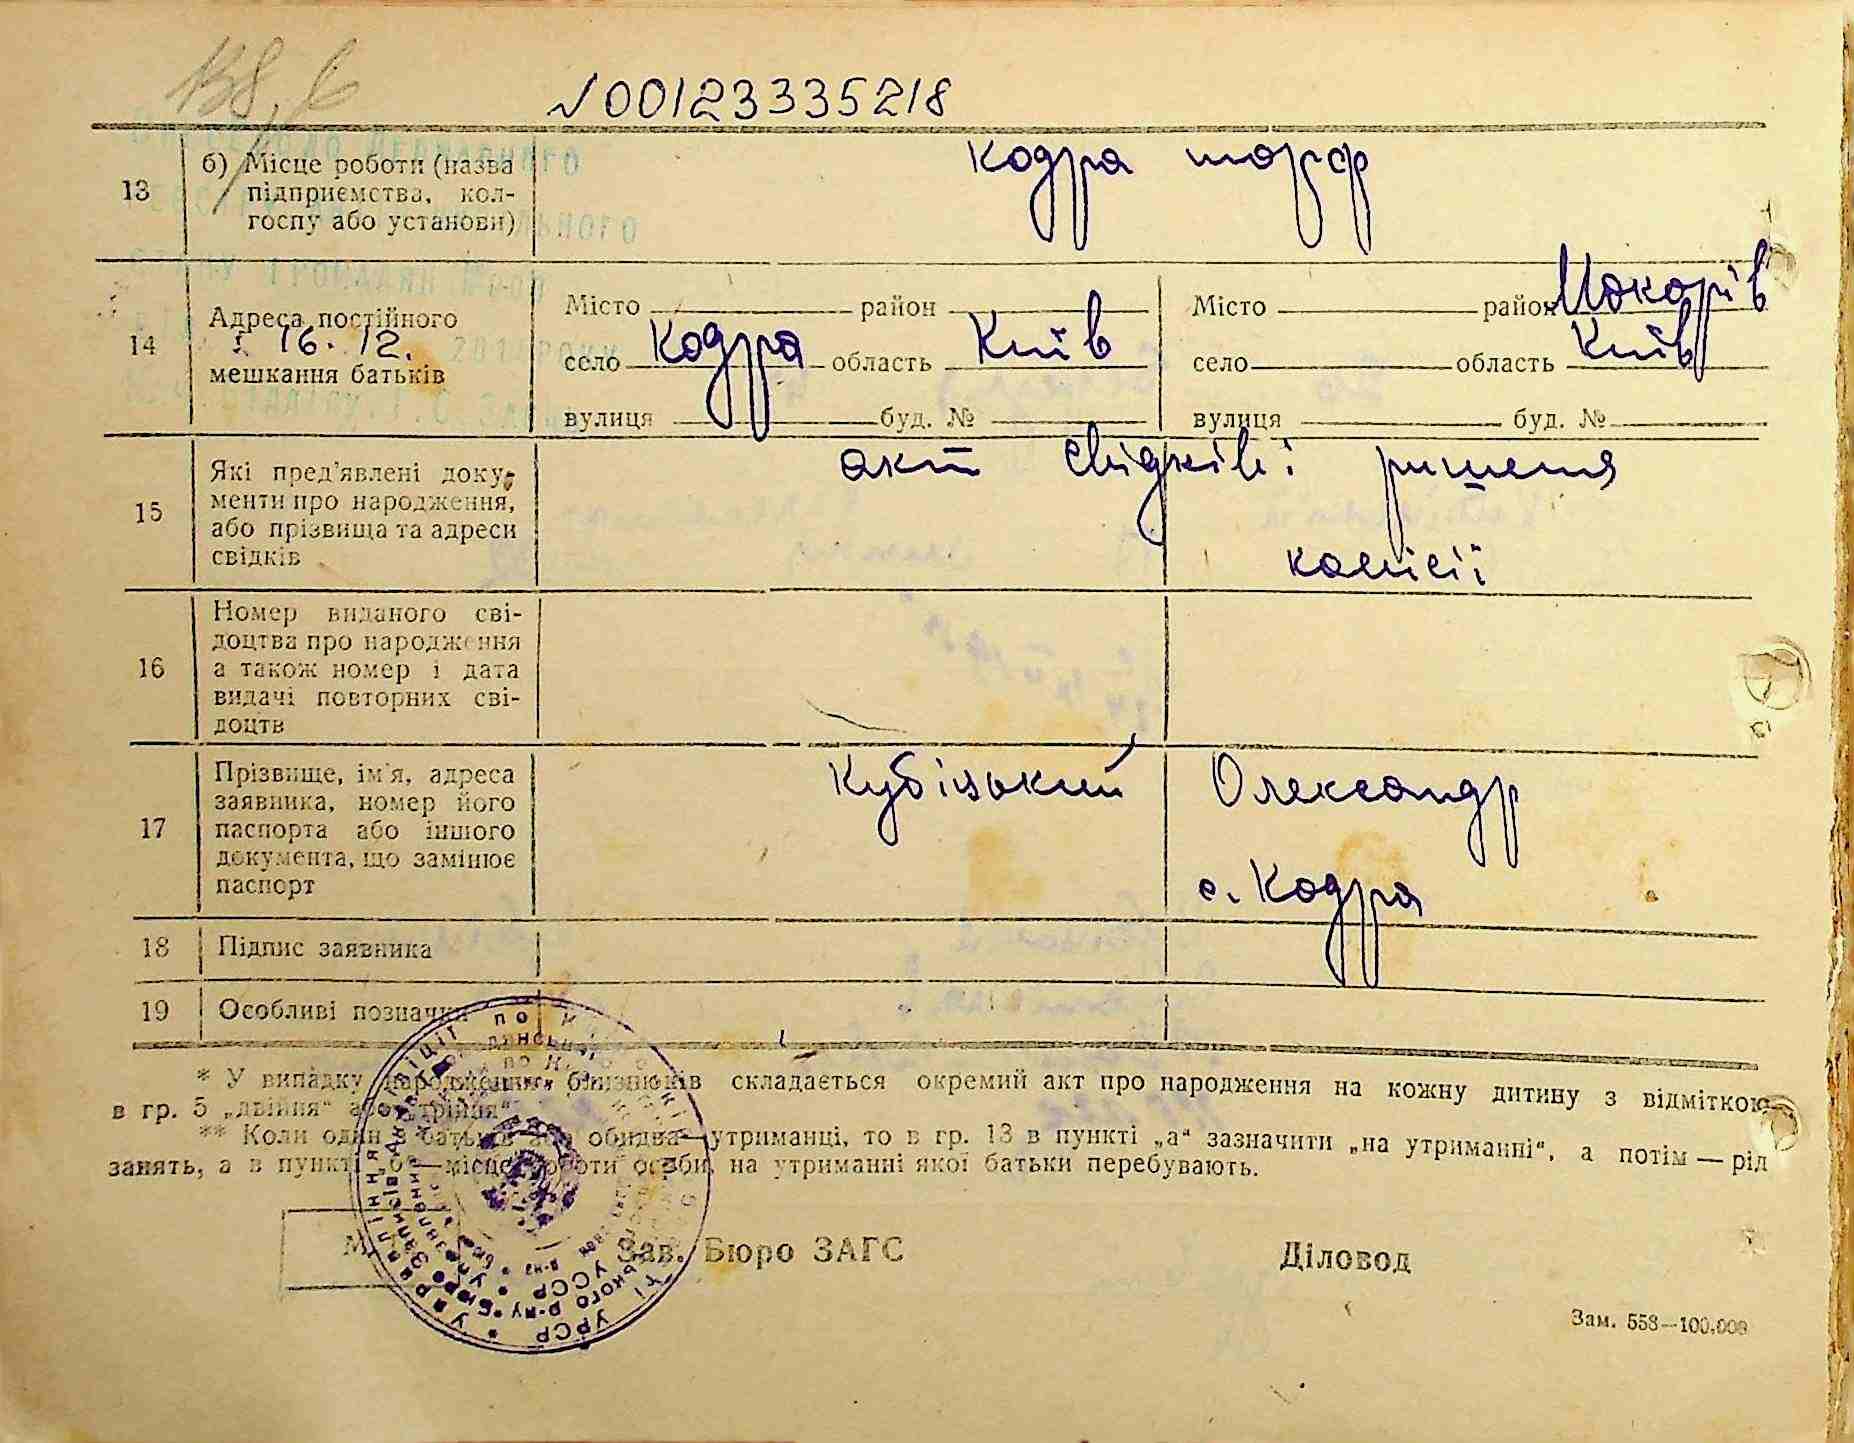 №00123335218
13 б) Місце роботи (назва
підприємства, кол-
госпу або установи)
Кодра торф
14 Адреса постійного
16.12.
мешкання батьків
Місто район
село Кодра область Київ
вулиця буд. №
Місто район Макарів
село область Київ
вулиця буд. №
15 Які пред'явлені доку-
менти про народження,
або прізвища та адреси
свідків
акт свідків і ришення
комісії
16 Номер виданого сві-
доцтва про народження
а також номер і дата
видачі повторних сві-
доцтв
17 Прізвище, ім'я, адреса
заявника, номер його
паспорта або іншого
документа, що замінює
паспорт
Олександр
с. Кодра
18 Підпис заявника
19 Особливі позначки
* У випадку народження близнюків складається окремий акт про народження на кожну дитину з відміткою
в гр. 5 „двійня“ або „трійня“
** Коли один з батьків або обидва—утриманці, то в гр. 13 в пункті „а“ зазначити „на утриманні“, а потім — рід
занять, а в пункті „б“—місце роботи особи, на утриманні якої батьки перебувають.
Зав. Бюро ЗАГС Діловод
УРСР
УССР
Зам. 558—100,000